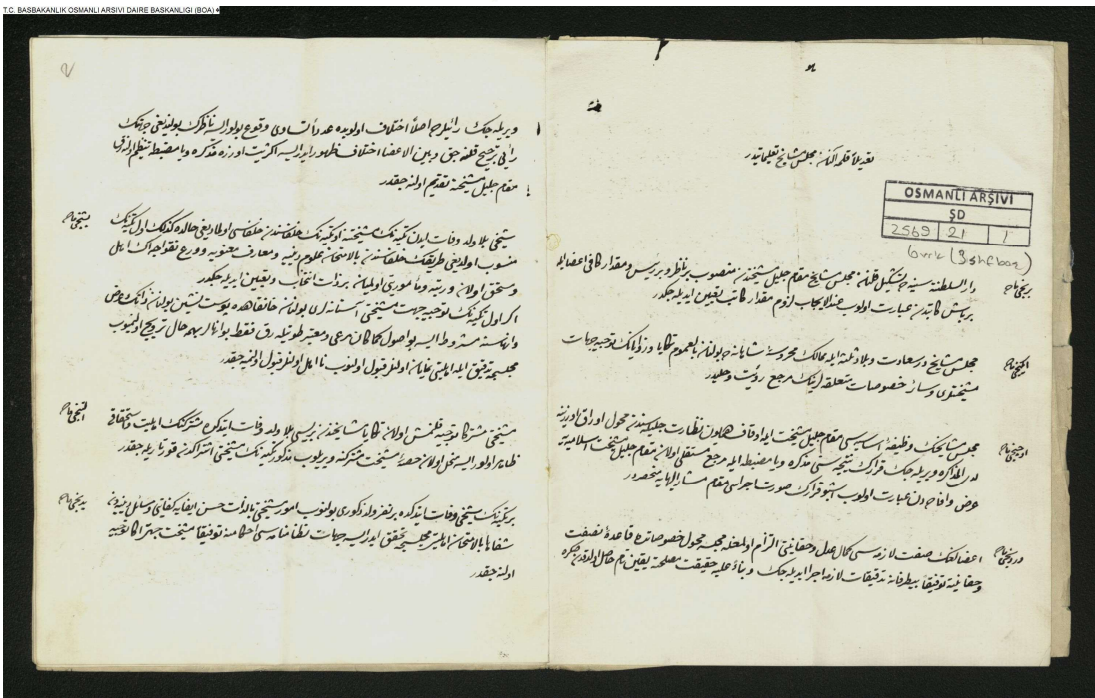 T.C. BASBAKANLIK OSMANLI ARSIVI DAIRE BASKANLIGI (BOA)
تعديلاً قلمه آلنان مجلس مشايخ تعليماتيدر
OSMANLI ARŞIVI
ŞD
2569 | 21 | 1
برنجى ماده
دار السلطنه سنيه ده تشكيل قلنان مجلس مشايخ مقام جليل مشيختدن منصوب برناظر و بر رئيس و مقدار كافى اعضا ايله
بر باش كاتبدن عبارت اولوب عند الايجاب لزومى مقدار كاتب تعيين ايديله جكدر
ايكنجى ماده
مجلس مشايخ در سعادت و بلاد ثلثه ايله ممالك محروسۀ شاهانه ده بولنان بالعموم تكايا و زوايانك توجيه جهات
مشيختلرى و سائر خصوصات متعلقه لرينك مرجع رؤيت و حليدر
اوچنجى ماده
مجلس مشايخك وظيفۀ اساسيه سى مقام جليل مشيخت ايله اوقاف همايون نظارت جليله سندن محول اوراق اوزرينه
لدى المذاكره ويريله جك قرارك نتيجه سنى مذكره ويا مضبطه ايله مرجع مستقلى اولان مقام جليل مشيخت اسلاميه يه
عرض و افاده دن عبارت اولوب اشبو قرارك صورت اجراسى مقام مشار اليهايه منحصردر
دردنجى ماده
اعضالغك صفت لازمه سى كمال عدل و حقانيتى التزام اولمغله مجلسه محول خصوصاتده قاعدۀ نصفت
و حقانيته توفيقاً بيطرفانه تدقيقات لازمه اجرا ايديله جك و بناءً عليه حقيقت مصلحته يقين تام حاصل اولدقدن صكره
ويريله جك رأيلرده اصلا اختلاف اولميه عدداً تساوى وقوع بولور ايسه ناظرك بولنديغى جهتك
رأيى ترجيح قلنه جق و بين الاعضا اختلاف ظهور ايدر ايسه اكثريت اوزره مذكره ويا مضبطه تنظيم اولنه رق
مقام جليل مشيخته تقديم اولنه جقدر
بشنجى ماده
شيخى بلا ولد وفات ايدن تكيه نك مشيختنه او تكيه نك خلفاسندن خلفاسى اولمديغى حالده كذلك اول تكيه نك
منسوب اولديغى طريقك خلفاسندن بالامتحان علوم دينيه و معارف معنويه و ورع و تقواجه اك اهل
و مستحق اولان و رتبه و مأموريتى اولميان بر ذات انتخاب و تعيين ايديله جكدر
اكر اول تكيه نك توجيه جهت مشيختى آستانه لرى بولنان خانقاهده پوست نشين بولنان ذاتك عرض
و انهاسنه مشروط ايسه بو اصول كما كان مرعى و معتبر طوتيله رق فقط بو انهالر بهمه حال ترويج اولنميوب
مجلسجه تدقيق ايله اهليتى نمايان اولنلر قبول اولنوب نا اهل اولنلر قبول اولنميه جقدر
التنجى ماده
مشيختى مشتركاً توجيه قلنمش اولان تكايا مشايخندن بريسى بلا ولد وفات ايتدكده مشتركنك اهليت و استحقاقى
ظاهر اولور ايسه منحل اولان حصۀ مشيخت مشتركنه ويريلوب مذكور تكيه نك مشيختى اشتراكدن قورتاريله جقدر
يدنجى ماده
بر تكيه نك شيخى وفات ايتدكده بر نفر ولد ذكورى بولنوب امور مشيختى بالذات حسن ايفايه كفايتى وسائل
شفاها بالامتحان اهليتى مجلسجه تحقق ايدر ايسه جهات نظامنامه سى احكامنه توفيقاً مشيخت جهتى اكا توجيه
اولنه جقدر